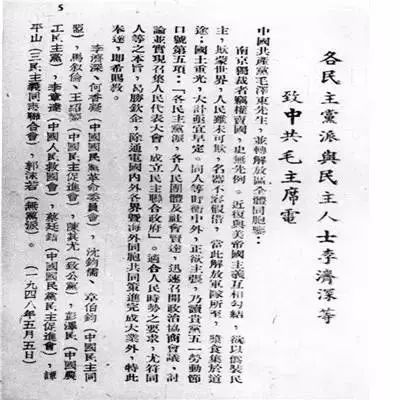 各民主黨派與民主人士李濟深等
致中共毛主席電
中國共產黨毛澤東先生,並轉解放區全體同胞鑒:
南京獨裁者竊權賣國,史無先例。近復與美帝國主義互相勾結,欲以僞裝民
主,欺蒙世界,人民雖未可欺,名器不容假借,當此解放軍隊所至,漿食集於道
途;國土重光,大計亟宜早定。同人等盱衡中外,正欲主張,乃讀貴黨五一勞動節
口號第五項:「各民主黨派,各人民團體及社會賢達,迅速召開政治協商會議,討
論並實現召集人民代表大會,成立民主聯合政府」。適合人民時勢之要求,尤符同
人等之本旨,曷勝欽企,除通電國內外各界暨海外同胞共同策進完成大業外,特此
奉達,即希賜教。
李濟深、何香凝(中國國民黨革命委員會),沈鈞儒、章伯鈞(中國民主同
盟),馬叙倫、王紹鏊(中國民主促進會),陳其尤(致公黨),彭澤民(中國農
工民主黨),李章達(中國人民救國會),蔡廷鍇(中國國民黨民主促進會),譚
平山(三民主義同志聯合會),郭沫若(無黨派)。(一九四八年五月五日)
5